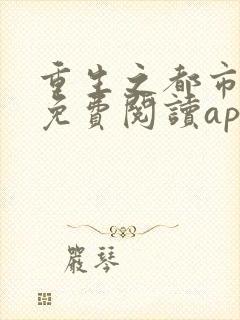 重生之都市
免費閱讀ap
嚴琴